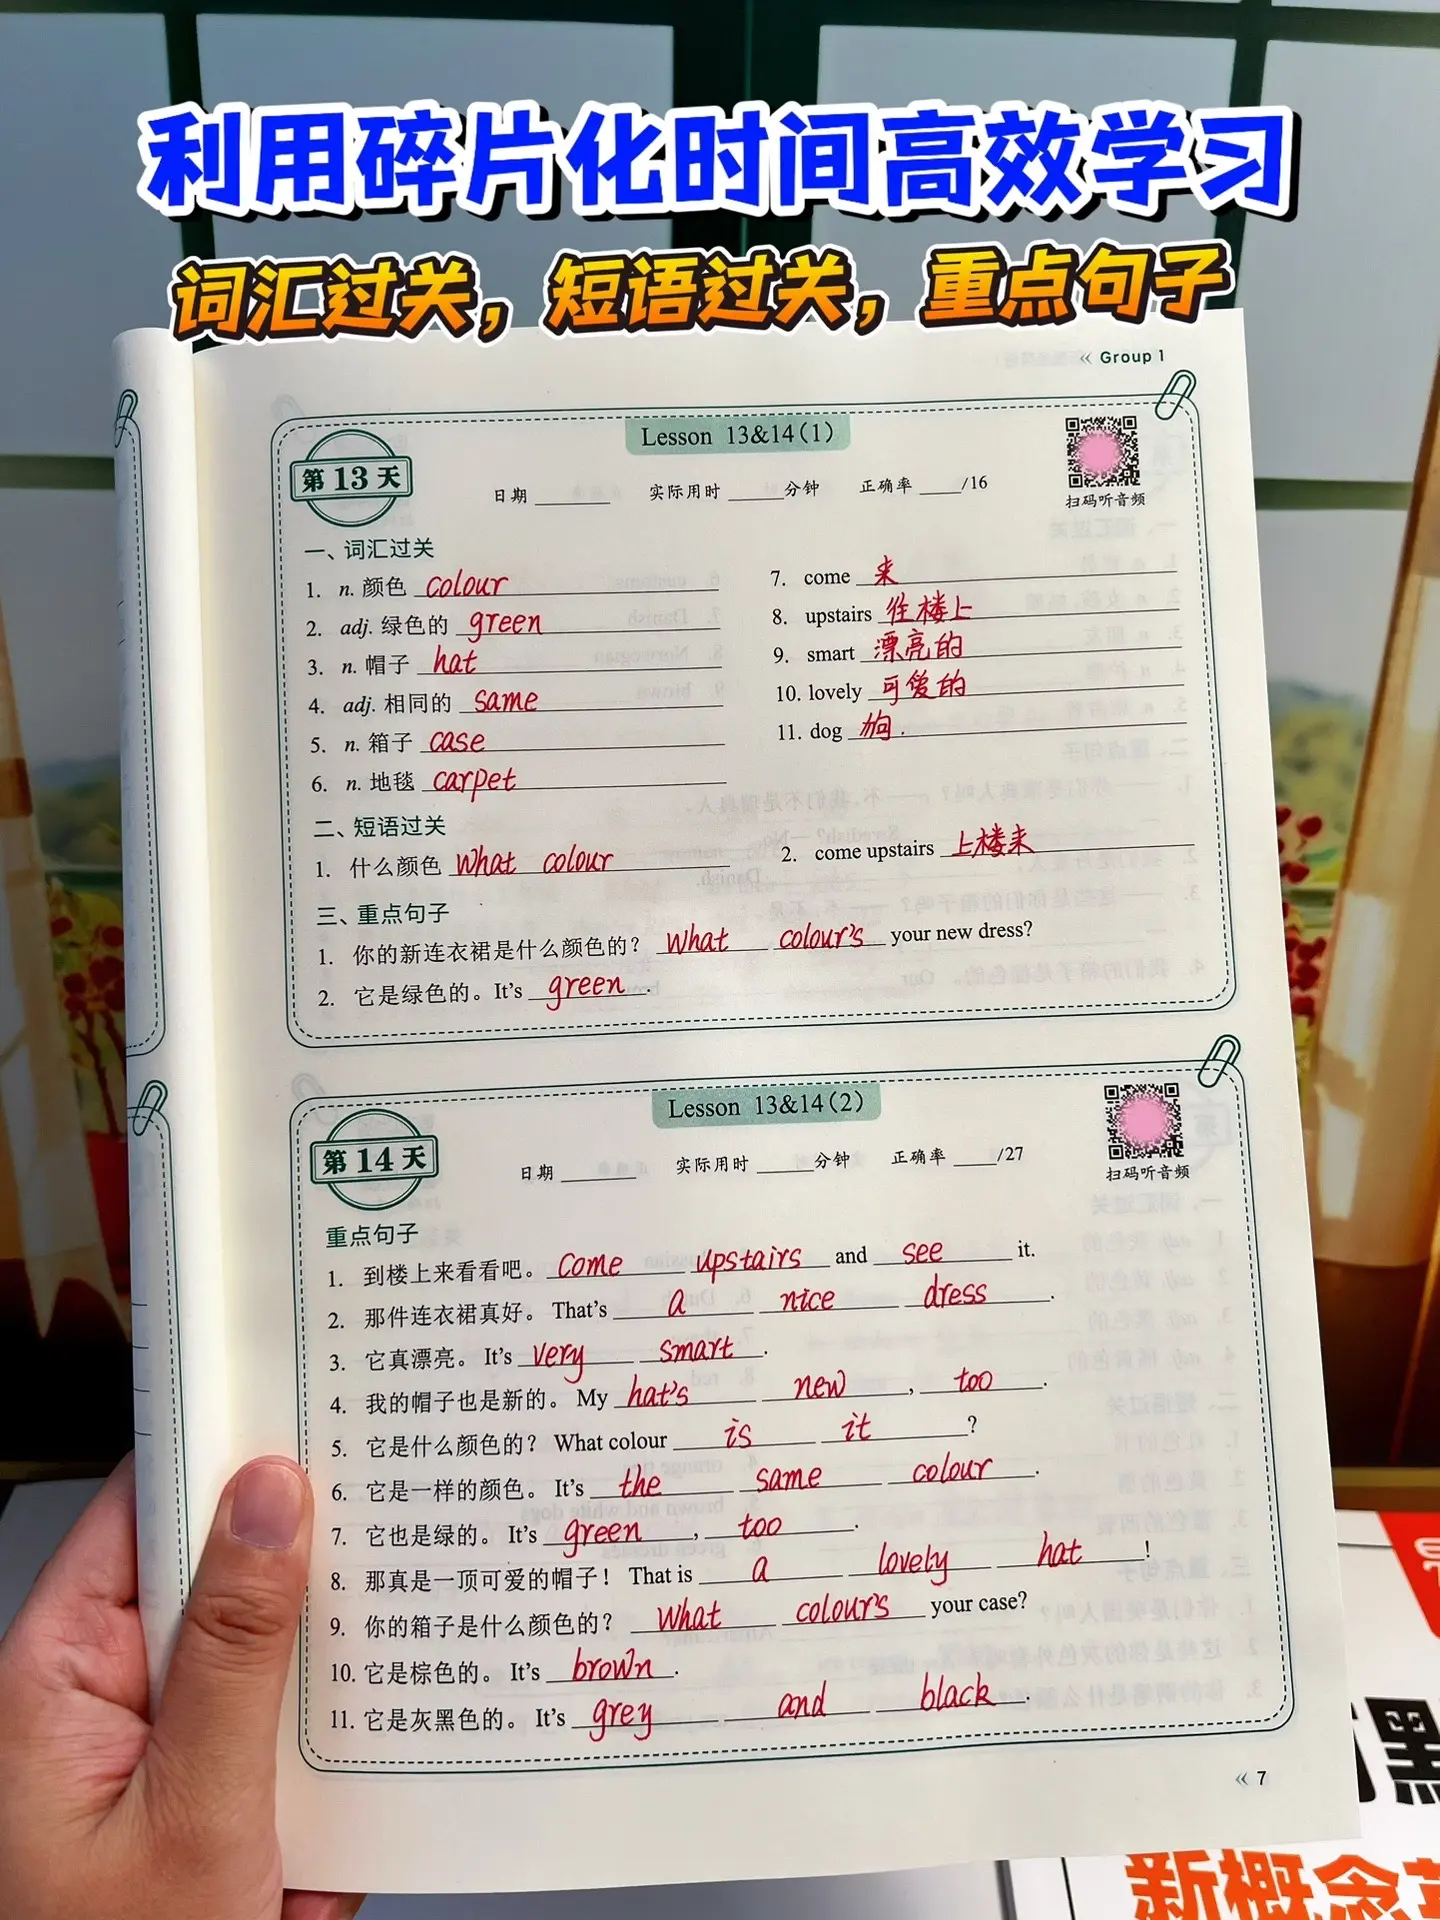 利用碎片化时间高效学习
词汇过关，短语过关，重点句子
« Group 1
Lesson 13&14(1)
第13天
日期 ______ 实际用时 ______分钟 正确率 ____/16
扫码听音频
一、词汇过关
1. n. 颜色 colour
2. adj. 绿色的 green
3. n. 帽子 hat
4. adj. 相同的 same
5. n. 箱子 case
6. n. 地毯 carpet
7. come 来
8. upstairs 往楼上
9. smart 漂亮的
10. lovely 可爱的
11. dog 狗.
二、短语过关
1. 什么颜色 what colour
2. come upstairs 上楼来
三、重点句子
1. 你的新连衣裙是什么颜色的？ What colour's your new dress?
2. 它是绿色的。It's green.
Lesson 13&14(2)
第14天
日期 ______ 实际用时 ______分钟 正确率 ____/27
扫码听音频
重点句子
1. 到楼上来看看吧。 Come upstairs and see it.
2. 那件连衣裙真好。 That's a nice dress.
3. 它真漂亮。 It's very smart.
4. 我的帽子也是新的。 My hat's new, too.
5. 它是什么颜色的？ What colour is it ?
6. 它是一样的颜色。 It's the same colour.
7. 它也是绿的。 It's green, too.
8. 那真是一顶可爱的帽子！ That is a lovely hat!
9. 你的箱子是什么颜色的？ What colour's your case?
10. 它是棕色的。 It's brown.
11. 它是灰黑色的。 It's grey and black.
« 7
默
新概念英